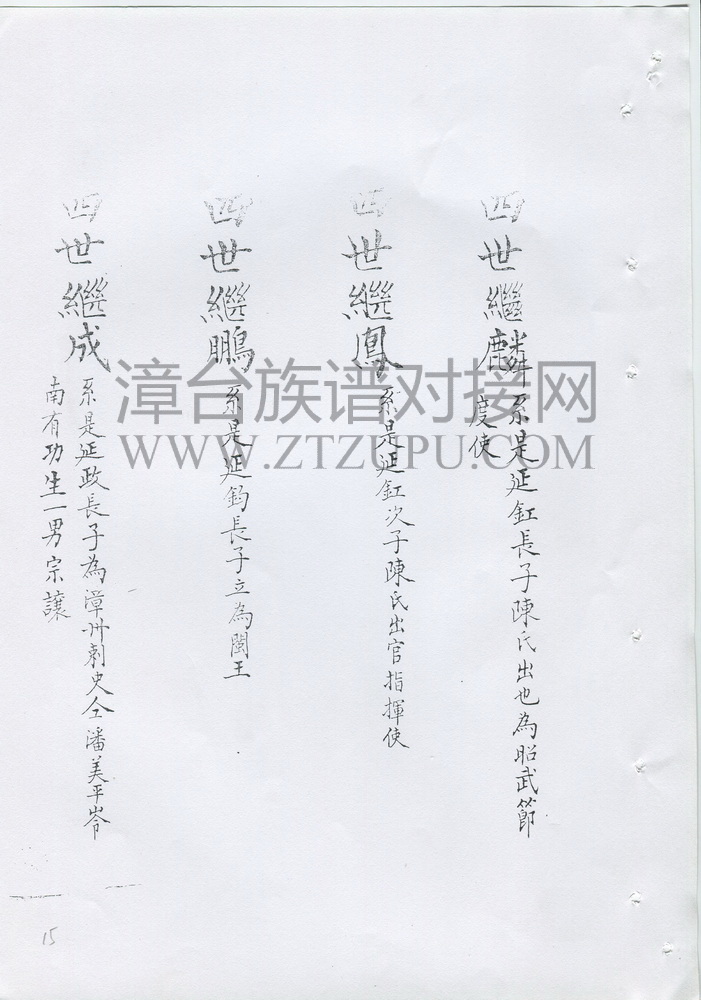 四世繼麟系是延釭長子陳氏出也為昭武節
度使
四世繼鳳系是延釭次子陳氏出官指揮使
四世繼鵬系是延鈞長子立為閩王
四世繼成系是延政長子為漳州刺史仝潘美平岺
南有功生一男宗讓
漳台族谱对接网
WWW.ZTZUPU.COM
15